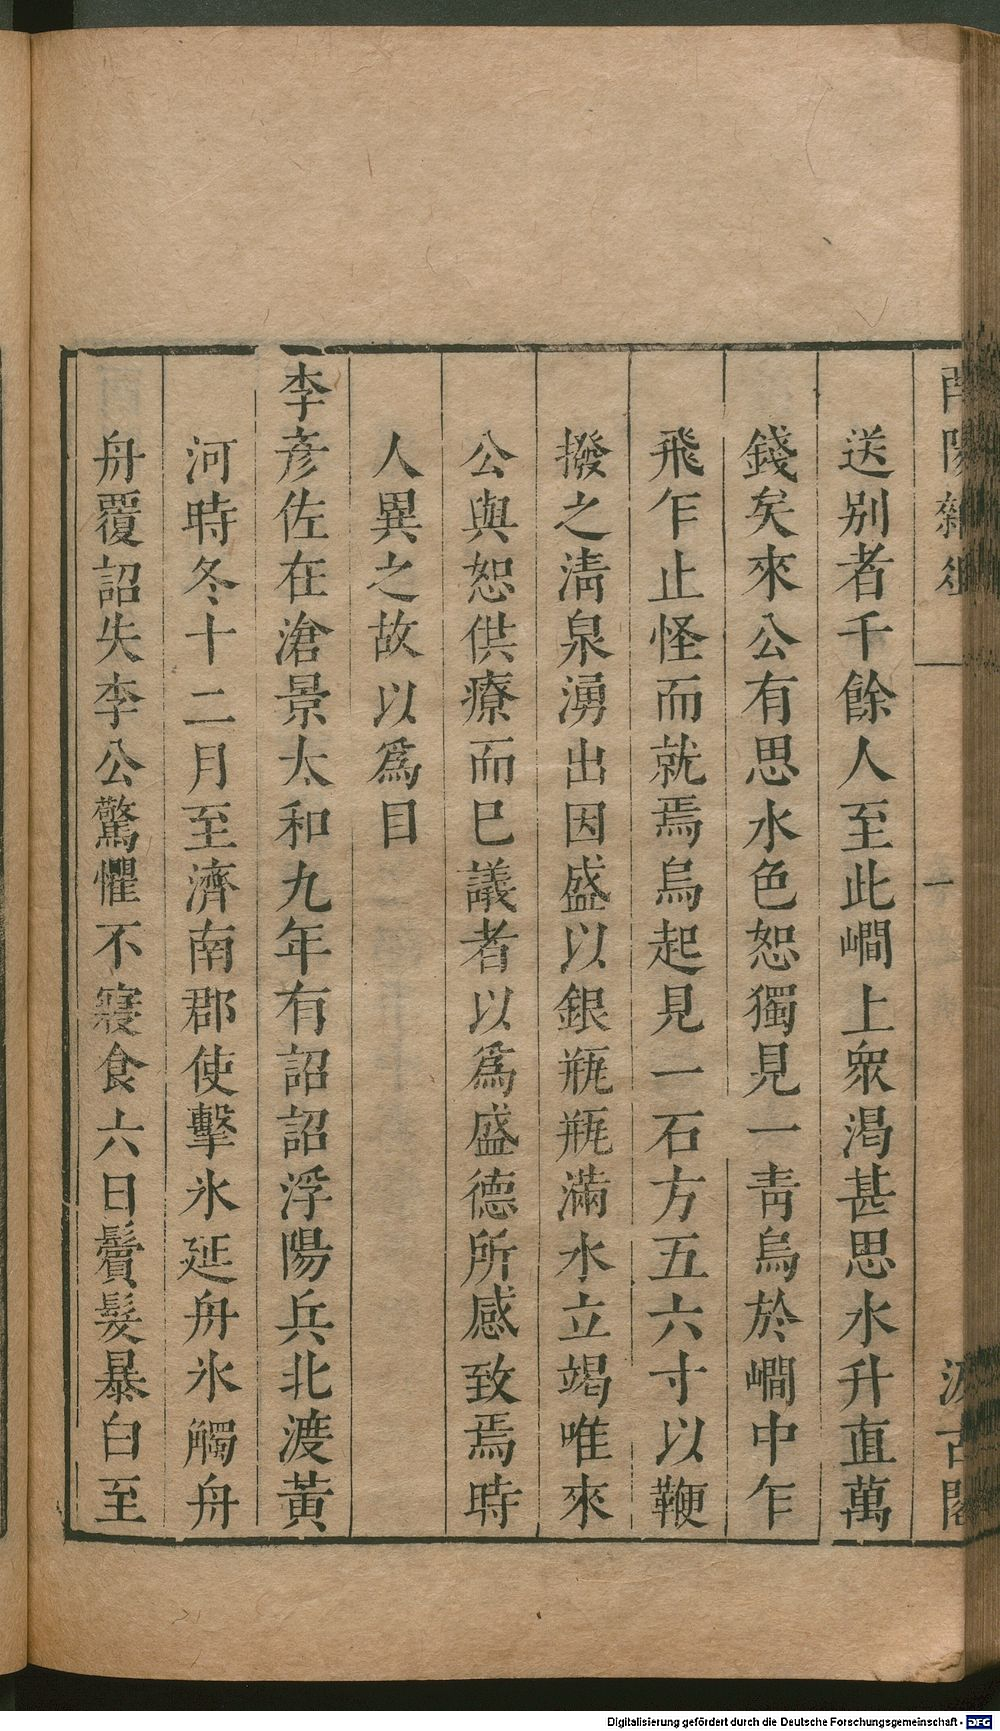 酉陽雜俎
一
汲古閣
送別者千餘人至此㵎上衆渴甚思水升直萬
錢矣來公有思水色恕獨見一靑烏於㵎中乍
飛乍止怪而就焉烏起見一石方五六寸以鞭
撥之淸泉湧出因盛以銀瓶瓶滿水立竭唯來
公與恕供療而巳議者以爲盛德所感致焉時
人異之故以爲目
李彦佐在滄景太和九年有詔詔浮陽兵北渡黃
河時冬十二月至濟南郡使擊氷延舟氷觸舟
舟覆詔失李公驚懼不寢食六日鬢髮暴白至
Digitalisierung gefördert durch die Deutsche Forschungsgemeinschaft - DFG